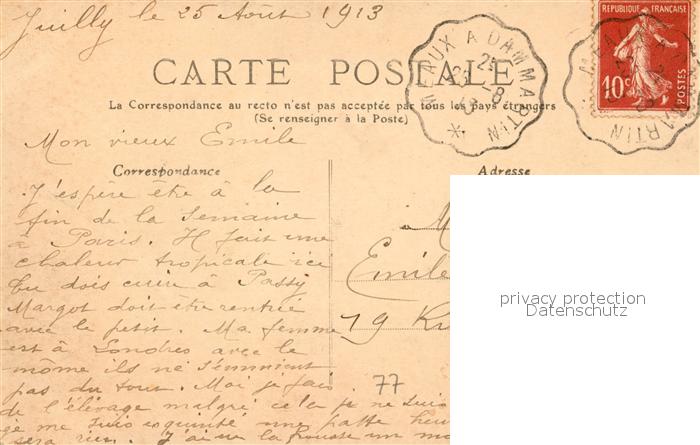 Juilly le 25 Août 1913
MEAUX A DAMMARTIN
25 -8
13
10c
POSTES
CARTE POSTALE
La Correspondance au recto n'est pas acceptée par tous les pays étrangers
(Se renseigner à la Poste)
Mon vieux Emile
Correspondance
Adresse
J'espère être à la
fin de la semaine
à Paris. Il fait une
chaleur tropicale ici
tu dois cuire à Passy
Margot doit être rentrée
avec le petit. Ma femme
est à Londres avec le
môme ils ne s'ennuient
pas du tout. Moi je fais
de l'élevage malgré cela je ne suis
me suis esquinté une patte
sera rien. J'ai eu la frousse un
à M
Emile
79
77
privacy protection
Datenschutz